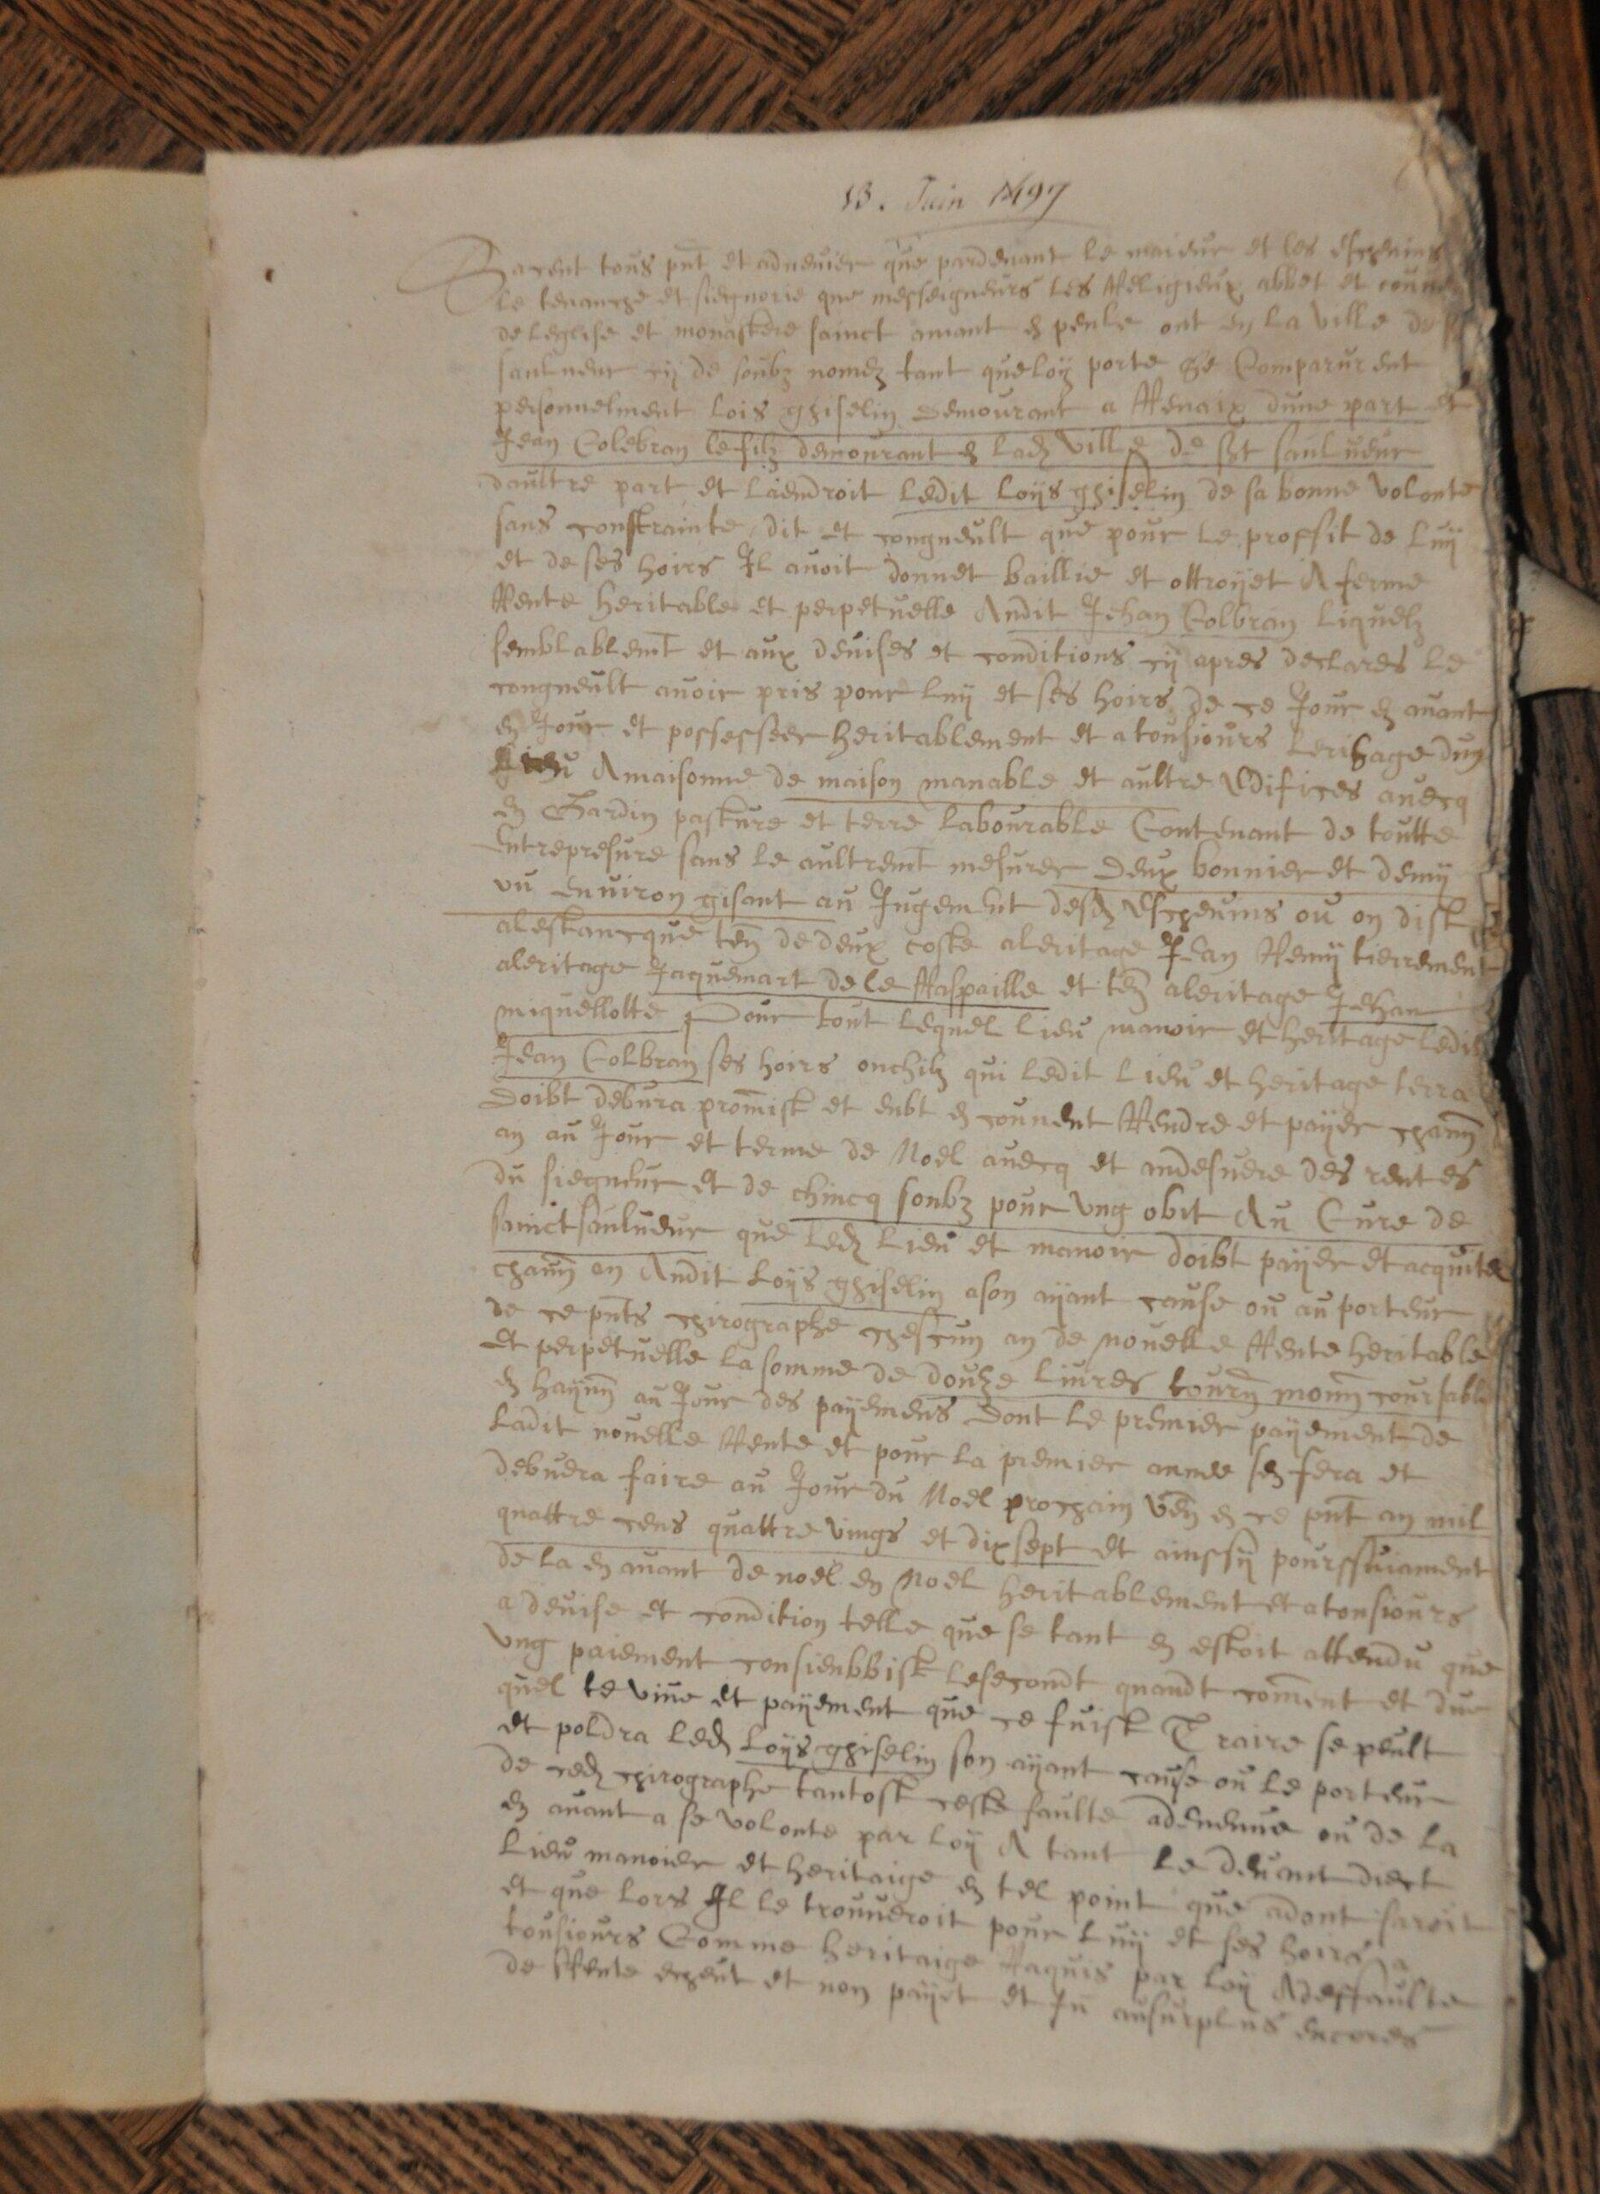 13. Juin 1497
Sacent tous pnt et advenir que pardevant le maieur et les eschevins
le tenanche et siegnorie que messeigneurs les Religieux abbet et couvent
de leglise et monastere sainct amant en peule ont en la ville de
saulveur cy de soubz nomez tant que loy porte Se Comparurent
personnelment lois ghiselin demourant a Renaix dune part et
Jean Colebran le filz demourant en lad ville de sct saulveur
daultre part et laiendroit ledit loijs ghiselin de sa bonne volonte
sans constrainte dit et congneult que pour le proffit de luij
et de ses hoirs Il avoit donnet baillie et ottroijet A ferme
Rente heritable et perpetuelle Audit Jehan Colbran liquelz
semblablemt et aux devises et conditions cij apres declares le
congneult avoir pris pour luij et ses hoirs de ce Jour en avant
en Jouir et possesser heritablement et a tousiours leritage dun
lieu Amaisonne de maison manable et aultre Edifices avecq
en Gardin pasture et terre labourable Contenant de toutte
Entrepresure sans le aultremt mesurer deux bonnier et demij
ou environ gisant au Jugement desd Eschevins ou on dist
a lestancque ten de deux coste a leritage Jean Remij tierrement
a leritage Jaquemart de le Raspaille et ten a leritage Jehan
miquellotte Pour tout lequel lieu manoir et heritage ledit
Jean Colbran ses hoirs ou chilz qui ledit lieu et heritage terra
Doibt debvra promist et eubt en couvent Rendre et paijer chaun
an au Jour et terme de Noel avecq et andesure des rentes
du siegneur et de chincq soubz pour ung obit Au Cure de
sainct saulveur que led lieu et manoir doibt paijer et acquiter
chaun an Audit Loijs ghiselin a son aijant cause ou au porteur
de ce pnts chirographe chescun an de novelle Rente heritable
et perpetuelle la somme de douze livres tourn monn coursable
en haijnn au Jour des paijemens dont le premier paijement de
ladit novelle Rente et pour la premier annee sen fera et
debvera faire au Jour du Noel prochain ven en ce pnt an mil
quattre cens quattre vings et dix sept et ainssij pourssuiament
de la en avant de noel en Noel heritablement et a tousiours
a devise et condition telle que se tant en estoit attendu que
ung paiement consieubbist le secondt quandt coment et due
quel te vine et paijement que ce fuist Traire se peult
et poldra led Loijs ghiselin son aijant cause ou le porteur
de ced chirographe tantost ceste faulte advenue ou de la
en avant a se volonte par loij A tant le devant dict
lieu manoier et heritaige en tel point que adont saroit
et que lors Il le trouveroit pour luij et ses hoirs a
tousiours Comme heritaige Raquis par loij A deffaulte
de Rente escheut et non paijet et Ju ausurplus encores